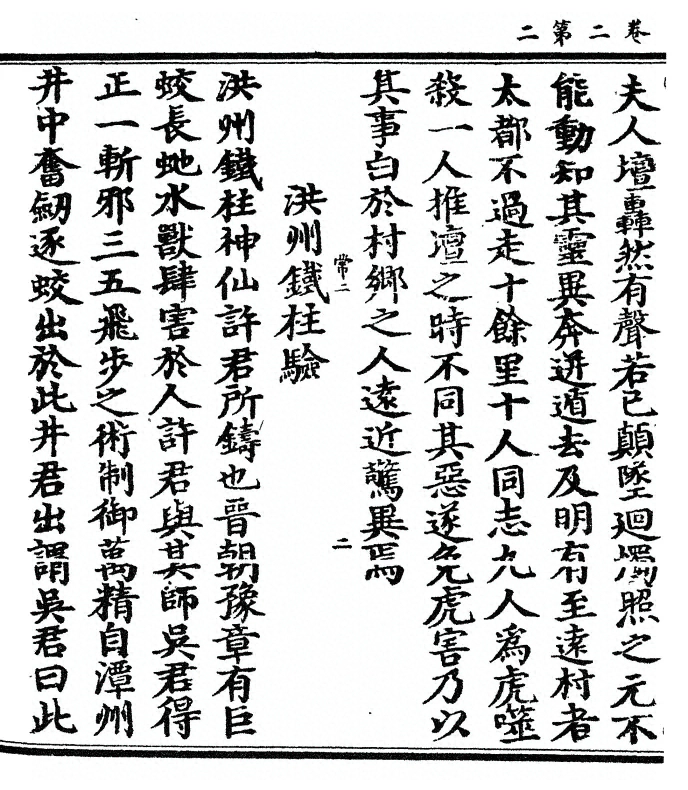 卷二第二
夫人壇轟然有聲若已顛墜迴燭照之元不
能動知其靈異奔迸遁去及明有至遠村者
太都不過走十餘里十人同志九人爲虎噬
殺一人推壇之時不同其惡遂免虎害乃以
其事白於村鄉之人遠近驚異焉
常二 二
洪州鐵柱驗
洪州鐵柱神仙許君所鑄也晉朝豫章有巨
蛟長虵水獸肆害於人許君與其師吳君得
正一斬邪三五飛步之術制御萬精自潭州
井中奮劒逐蛟出於此井君出謂吳君曰此